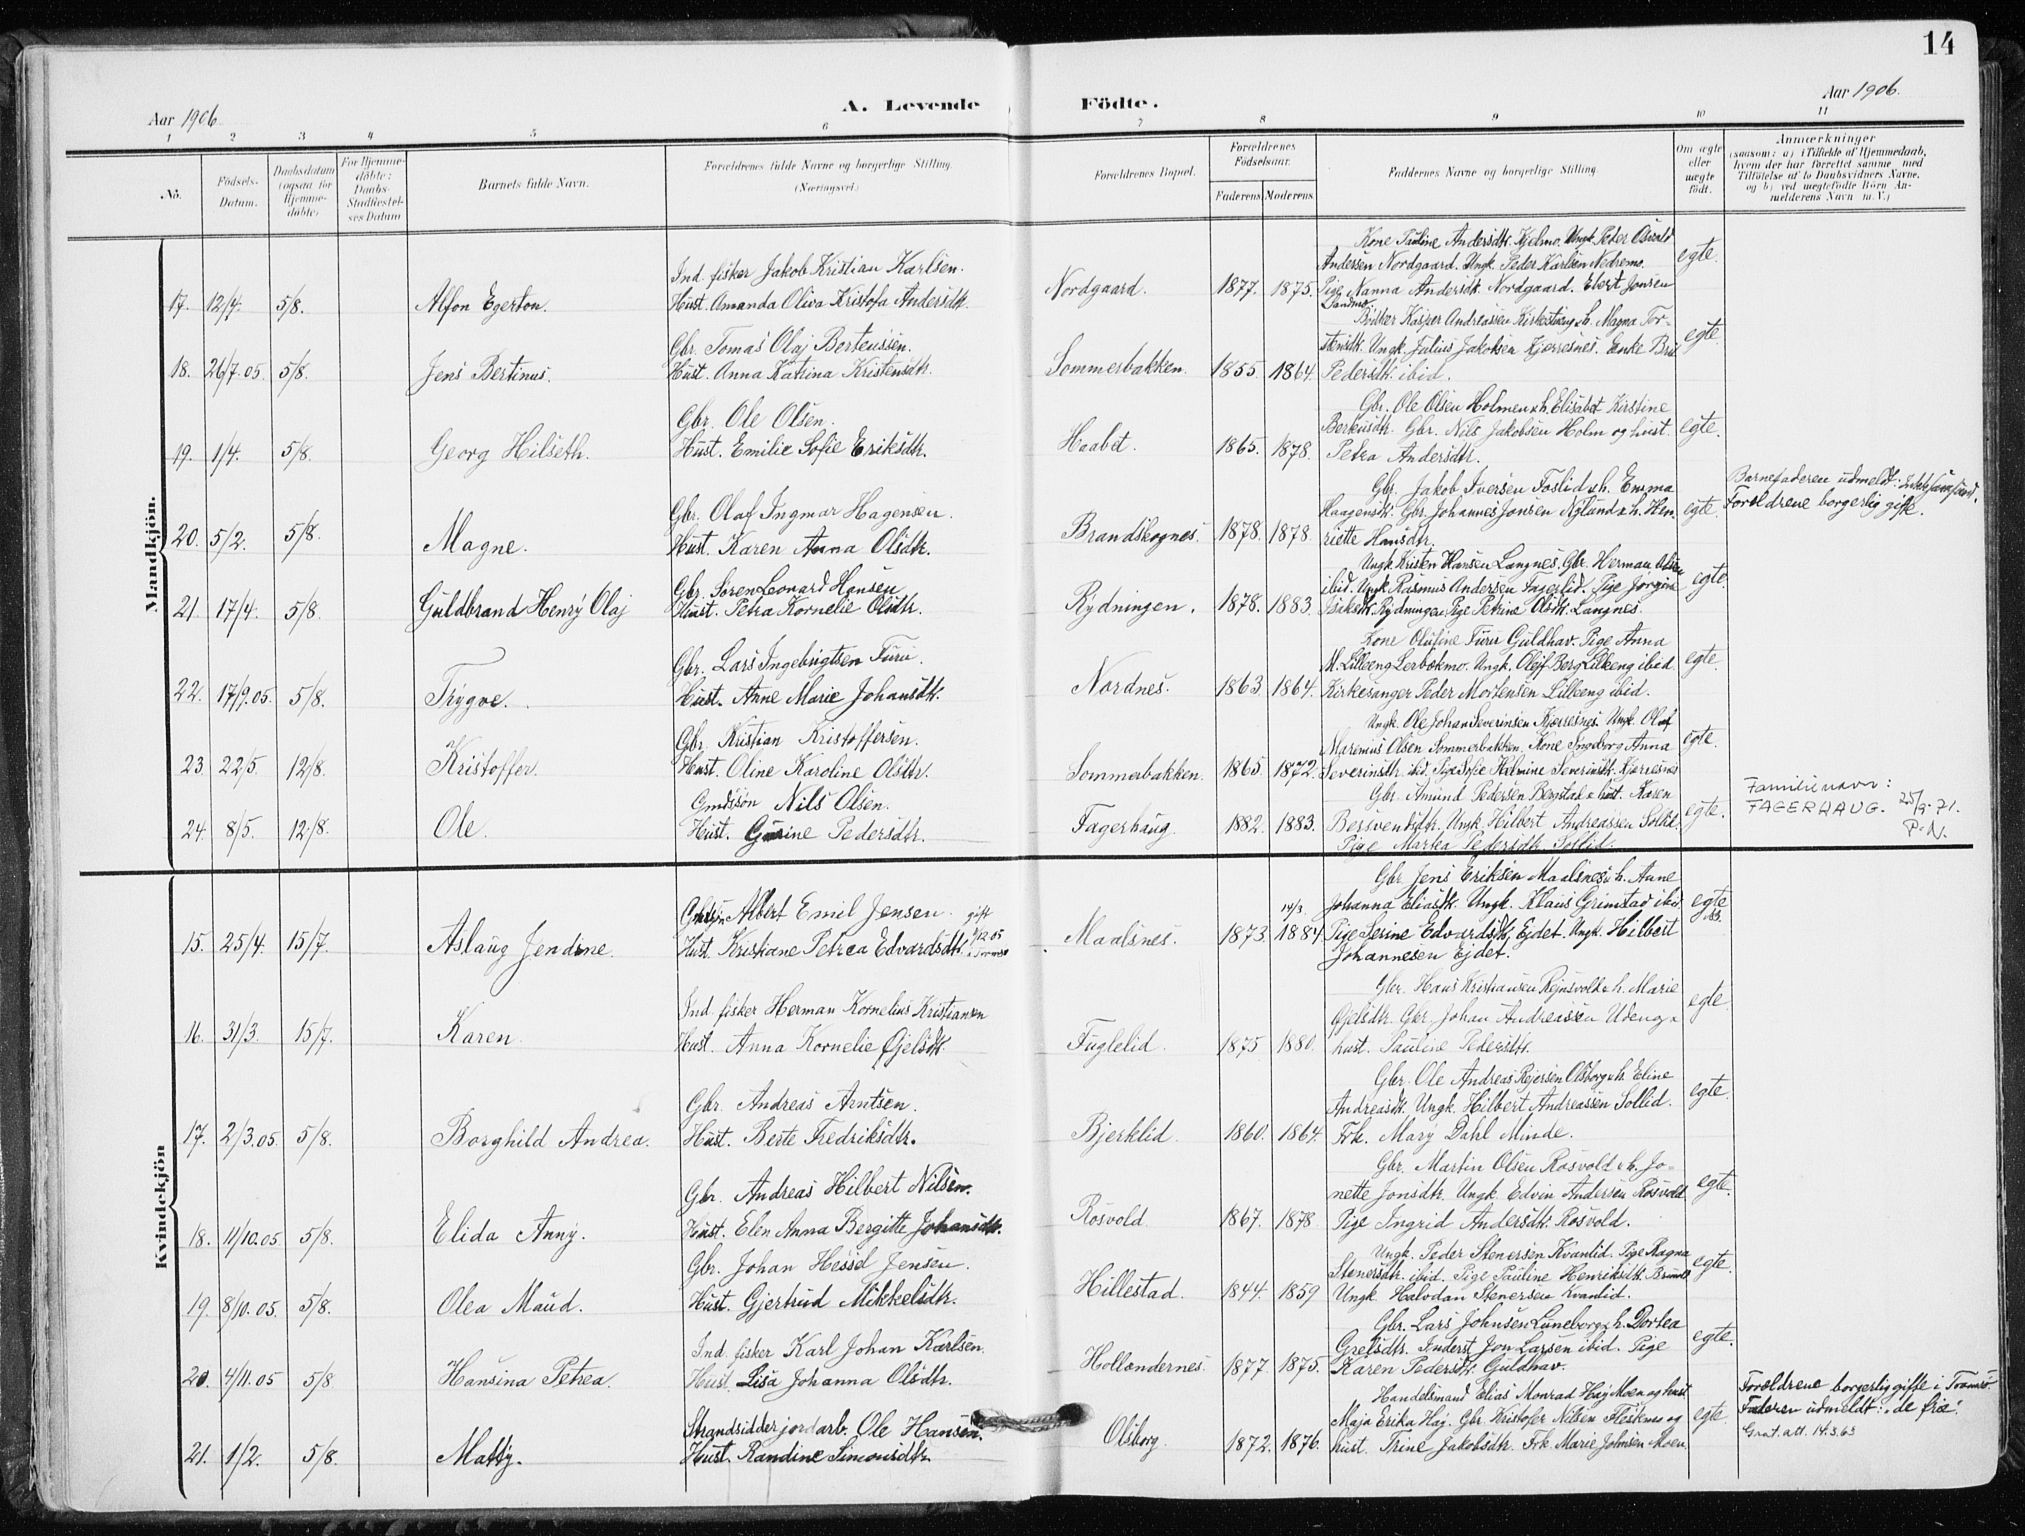 14
A. Levende Födte.
Aar 1906
Aar 1906.
1 2 3 4 5 6 7 8 9 10 11
No.
Födsels-Datum.
Daabsdatum (ogsaa for Hjemmedöbte.)
For Hjemmedöbte: Daabs-Stadfæstelses Datum
Barnets fulde Navn.
Forældrenes fulde Navne og borgerlige Stilling. (Næringsvei.)
Forældrenes Bopæl.
Forældrenes Födselsaar.
Faderens Moderens
Faddernes Navne og borgerlige Stilling.
Om ægte eller uægte födt.
Anmærkninger
(saasom: a) i Tilfælde af Hjemmedaab, hvem der har forrettet samme med Tilföielse af to Daabsvidners Navne, og b) ved uægtefödte Börn Anmelderens Navn m. V.)
Mandkjön.
Kone Pauline Andersdtr. Kjelmo. Ungk. Peder Osvald
Ind. fisker Jakob Kristian Karlsen. Andersen Nordgaard. Ungk. Peder Karlsen Nedremo. egte.
17. 12/4. 5/8. Alfon Egerton. Hust. Amanda Oliva Kristofa Andersdtr. Nordgaard. 1877. 1875. Pige Nanna Andersdtr. Nordgaard. Ebert Jensen
Sandmo.
Bødker Kasper Andreassen Kirkesteng & h. Magna Tor-
Gbr. Tomas Olaj Berteussen. stensdtr. Ungk. Julius Jakobsen Kjerresnes. Enke egte.
18. 26/7.05. 5/8. Jens Bertinus. Hust. Anna Katrina Kristensdtr. Sommerbakken. 1855. 1864. Pedersdtr. ibid.
Gbr. Ole Olsen Holmen & h. Elisabet Kirstine
Gbr. Ole Olsen. Gbr. Nils Jakobsen Holm og hust. egte.
19. 1/4. 5/8. Georg Hilseth. Hust. Emilie Sofie Eriksdtr. Haabet. 1865. 1878. Petra Andersdtr.
Gbr. Jakob Iversen Foslid & h. Emma Barnefaderen udmeldt:
Gbr. Olaf Ingmar Hagensen. Haagensdtr. Gbr. Johannes Jonsen Nylund & h. Hen- egte. Forældrene borgerlig gifte.
20. 5/2. 5/8. Magne. Hust. Karen Anna Olsdtr. Brandskognes. 1878. 1878. riette Hansdtr.
Ungk. Kristen Hansen Langnes. Gbr. Herman Olsen
Gbr. Søren Leonard Hansen ibid. Ungk. Rasmus Andersen Ingerlid. Pige Jørgine egte.
21. 17/4. 5/8. Guldbrand Henry Olaj Hust. Petra Kornelie Olsdtr. Rydningen. 1878. 1883. Rydningen. Pige Petrine Olsdtr. Langnes.
Kone Olufine Furu Guldhav. Pige Anna
Gbr. Lars Ingebrigtsen Furu. M. Lilleeng Lerbækmo. Ungk. Olejf Berg Lilleeng ibid egte.
22. 17/9.05. 5/8. Trygve. Hust. Anne Marie Johansdtr. Nordnes. 1863. 1864. Kirkesanger Peder Mortensen Lilleeng ibid.
Ungk. Ole Johan Severinsen Kjærresnes. Ungk. Olaf
Gbr. Kristian Kristoffersen. Maremius Olsen Sommerbakken. Kone Ingeborg Anna egte.
23. 22/5. 12/8. Kristoffer. Hust. Oline Karoline Olsdtr. Sommerbakken. 1865. 1872. Severinsdtr. ibid. Pige Sofie Halmine Severinsdtr. Kjærresnes
Gbr. Amund Pedersen Bergstad & hust. Karen Familienavn:
Gmdssøn Nils Olsen. egte. FAGERHAUG. 25/9-71.
24. 8/5. 12/8. Ole. Hust. Gurine Pedersdtr. Fagerhaug. 1882. 1883. Ungk. Hilbert Andreassen Sollid. P.N.
Pige Martea Pedersdtr. Sollid.
Kvindekjön
Gbr. Jens Eriksen Maalsnes & h. Anne
Albert Emil Jensen. gift 14/3. Johanna Eliasdtr. Ungk. Klaus Grimstad ibid egte
15. 25/4. 15/7. Aslaug Jendine. Hust. Kristiane Petrea Edvardsdtr. Maalsnes. 1873. 1884 Pige Serine Edvardsdtr. Ejdet. Ungk. Hilbert
Johannesen Ejdet.
Gbr. Hans Kristiansen Rejnsvold & h. Marie
Ind. fisker Herman Kornelius Kristiansen Gjelsdtr. Gbr. Johan Andreassen Udeng & egte
16. 31/3. 15/7. Karen. Hust. Anna Kornelie Gjelsdtr. Fuglelid. 1875 1880. hust. Pauline Pedersdtr.
Gbr. Ole Andreas Rejersen Olsborg & h. Eline
Gbr. Andreas Arntsen. Andreasdtr. Ungk. Hilbert Andreassen Sollid. egte.
17. 2/3.05. 5/8. Borghild Andrea. Hust. Berte Fredriksdtr. Bjerklid. 1860. 1864. Frk. Mary Dahl Minde.
Gbr. Martin Olsen Rosvold & h. Jo-
Gbr. Andreas Hilbert Nilsen. nette Jonsdtr. Ungk. Edvin Andersen Rosvold egte.
18. 11/10.05 5/8. Elida Anny. Hust. Elen Anna Bergitte Johansdtr. Rosvold 1867. 1878. Pige Ingrid Andersdtr. Rosvold.
Ungk. Peder Stenersen Kvanlid. Pige Ragna
Gbr. Johan Hessel Jensen. Stenersdtr. ibid. Pige Pauline Henriksdtr. egte.
19. 8/10.05. 5/8. Olea Maud. Hust. Gjertrud Mikkelsdtr. Hillestad. 1844. 1859 Ungk. Halvdan Stenersen Kvanlid.
Gbr. Lars Johnsen Luneborg & h. Dortea
Ind. fisker Karl Johan Karlsen. Inderst Jon Larsen ibid. Pige egte.
20. 4/11.05 5/8 Hansina Petrea. Hust. Lisa Johanna Olsdtr. Hollændernes. 1877. 1875. Karen Pedersdtr. Guldhav.
Handelsmand Elias Monrad Haj Moen og hust Forældrene borgerlig gifte i Tromsø.
Strandsidder jordarb. Ole Hansen. Maja Erika Haj. Gbr. Kristofer Nilsen Fleskmo og egte. Faderen udmeldt: „de frie“.
21. 1/2. 5/8. Matty. Hust. Randine Simonsdtr. Olsborg. 1872. 1876. hust. Trine Jakobsdtr. Frk. Marie Johnsen Moen. Grat. att. 14.3.63